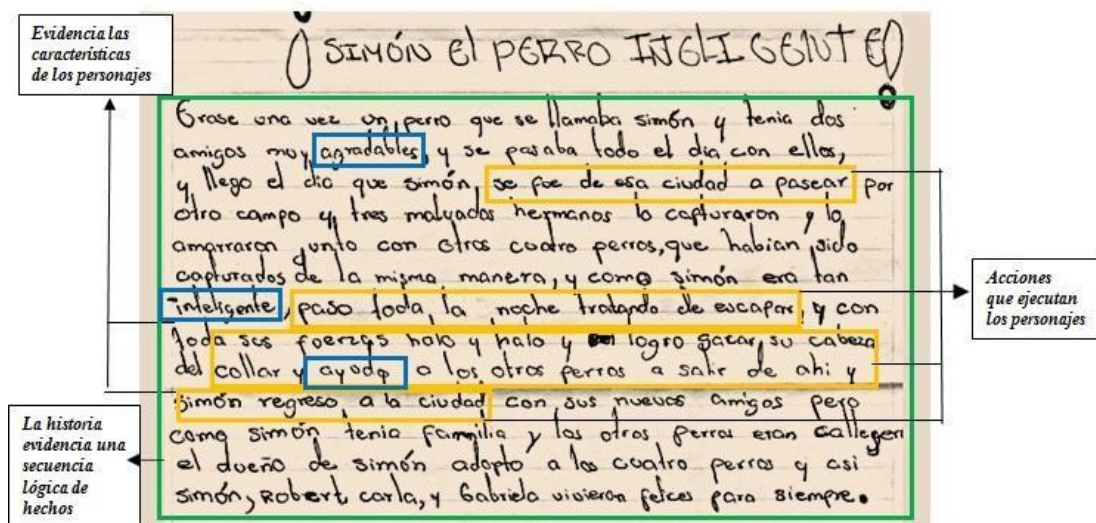 Evidencia las
características
de los personajes
¡SIMÓN El PERRO INGLIGENTE!
Erase una vez un perro que se llamaba simón y tenia dos
amigos muy agradables, y se pasaba todo el dia con ellos,
y llego el dia que simón, se fue de esa ciudad a pasear por
otro campo y, tres malvados hermanos lo capturaron y lo
amarraron junto con otros cuatro perros, que habian sido
capturados de la misma manera, y como simón era tan
inteligente, paso toda la noche tratando de escapar, y con
toda sus fuerzas halo y halo y logro sacar su cabeza
del collar y ayudo a los otros perros a salir de ahi y
simón regreso a la ciudad con sus nuevos amigos pero
como simón tenia familia y los otros perros eran calleger
el dueño de simón adopto a los cuatro perros y asi
simón, Robert carla, y Gabriela vivieron felces para siempre.
Acciones
que ejecutan
los personajes
La historia
evidencia una
secuencia
lógica de
hechos